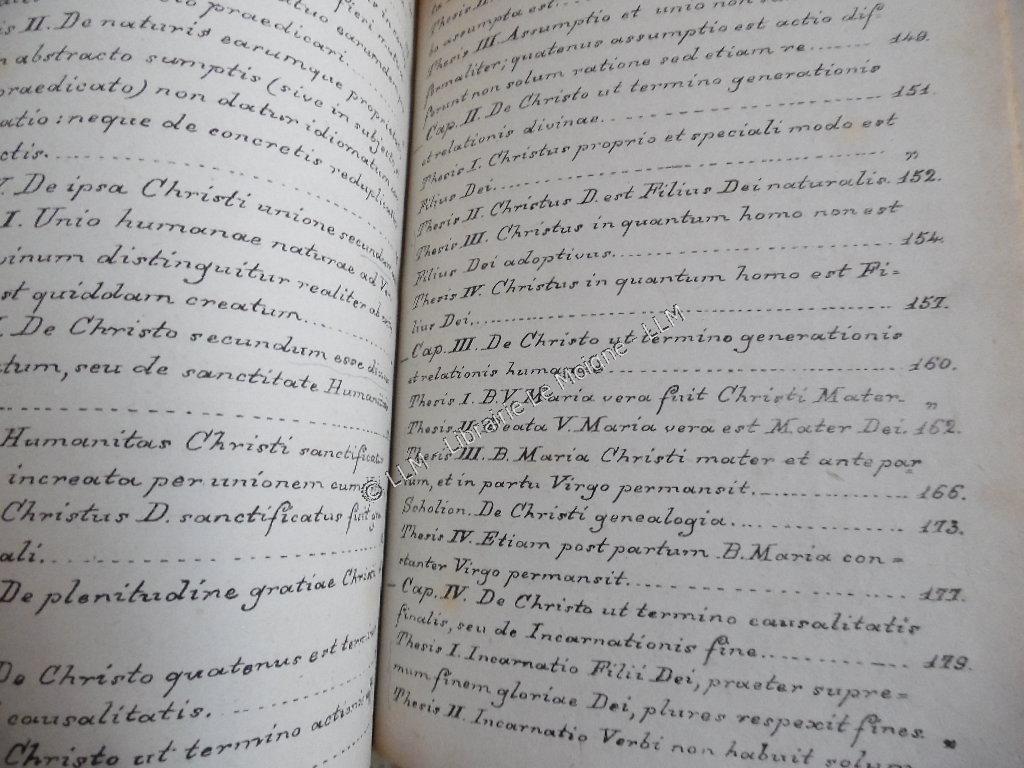 fieri
tuo earum
praedicari
is II. De naturis earumque propriet
n abstracto sumptis (sive in subjecto
praedicato) non datur idiomatum
atio: neque de concretis reduplica
ctis.
V. De ipsa Christi unione secundum
I. Unio humanae naturae ad Ver
vinum distinguitur realiter ab
st quiddam creatum.
I. De Christo secundum esse divin
tum, seu de sanctitate Humanita
Humanitas Christi sanctificat
increata per unionem cum
Christus D. sanctificatus fuit gra
ali.
De plenitudine gratiae Christi
De Christo quatenus est termin
i causalitatis.
Christo ut termino actionis
Thesis II.
to assumpta est.
Thesis III. Assumptio et unio non
formaliter; quatenus assumptio est actio dif=
ferunt non solum ratione sed etiam re. 149.
Cap. II. De Christo ut termino generationis
et relationis divinae. 151.
Thesis I. Christus proprio et speciali modo est
Filius Dei. "
Thesis II. Christus D. est Filius Dei naturalis. 152.
Thesis III. Christus in quantum homo non est
Filius Dei adoptivus. 154.
Thesis IV. Christus in quantum homo est Fi=
lius Dei. 157.
Cap. III. De Christo ut termino generationis
et relationis humanae. 160.
Thesis I. B.V. Maria vera fuit Christi Mater. "
Thesis II. Beata V. Maria vera est Mater Dei. 162.
Thesis III. B. Maria Christi mater et ante par
tum, et in partu Virgo permansit. 166.
Scholion. De Christi genealogia. 173.
Thesis IV. Etiam post partum B. Maria con=
stanter Virgo permansit. 177.
Cap. IV. De Christo ut termino causalitatis
finalis, seu de Incarnationis fine. 179.
Thesis I. Incarnatio Filii Dei, praeter supre=
mum finem gloriae Dei, plures respexit fines "
Thesis II. Incarnatio Verbi non habuit solum
© LLM - Librairie Le Moigne - LLM